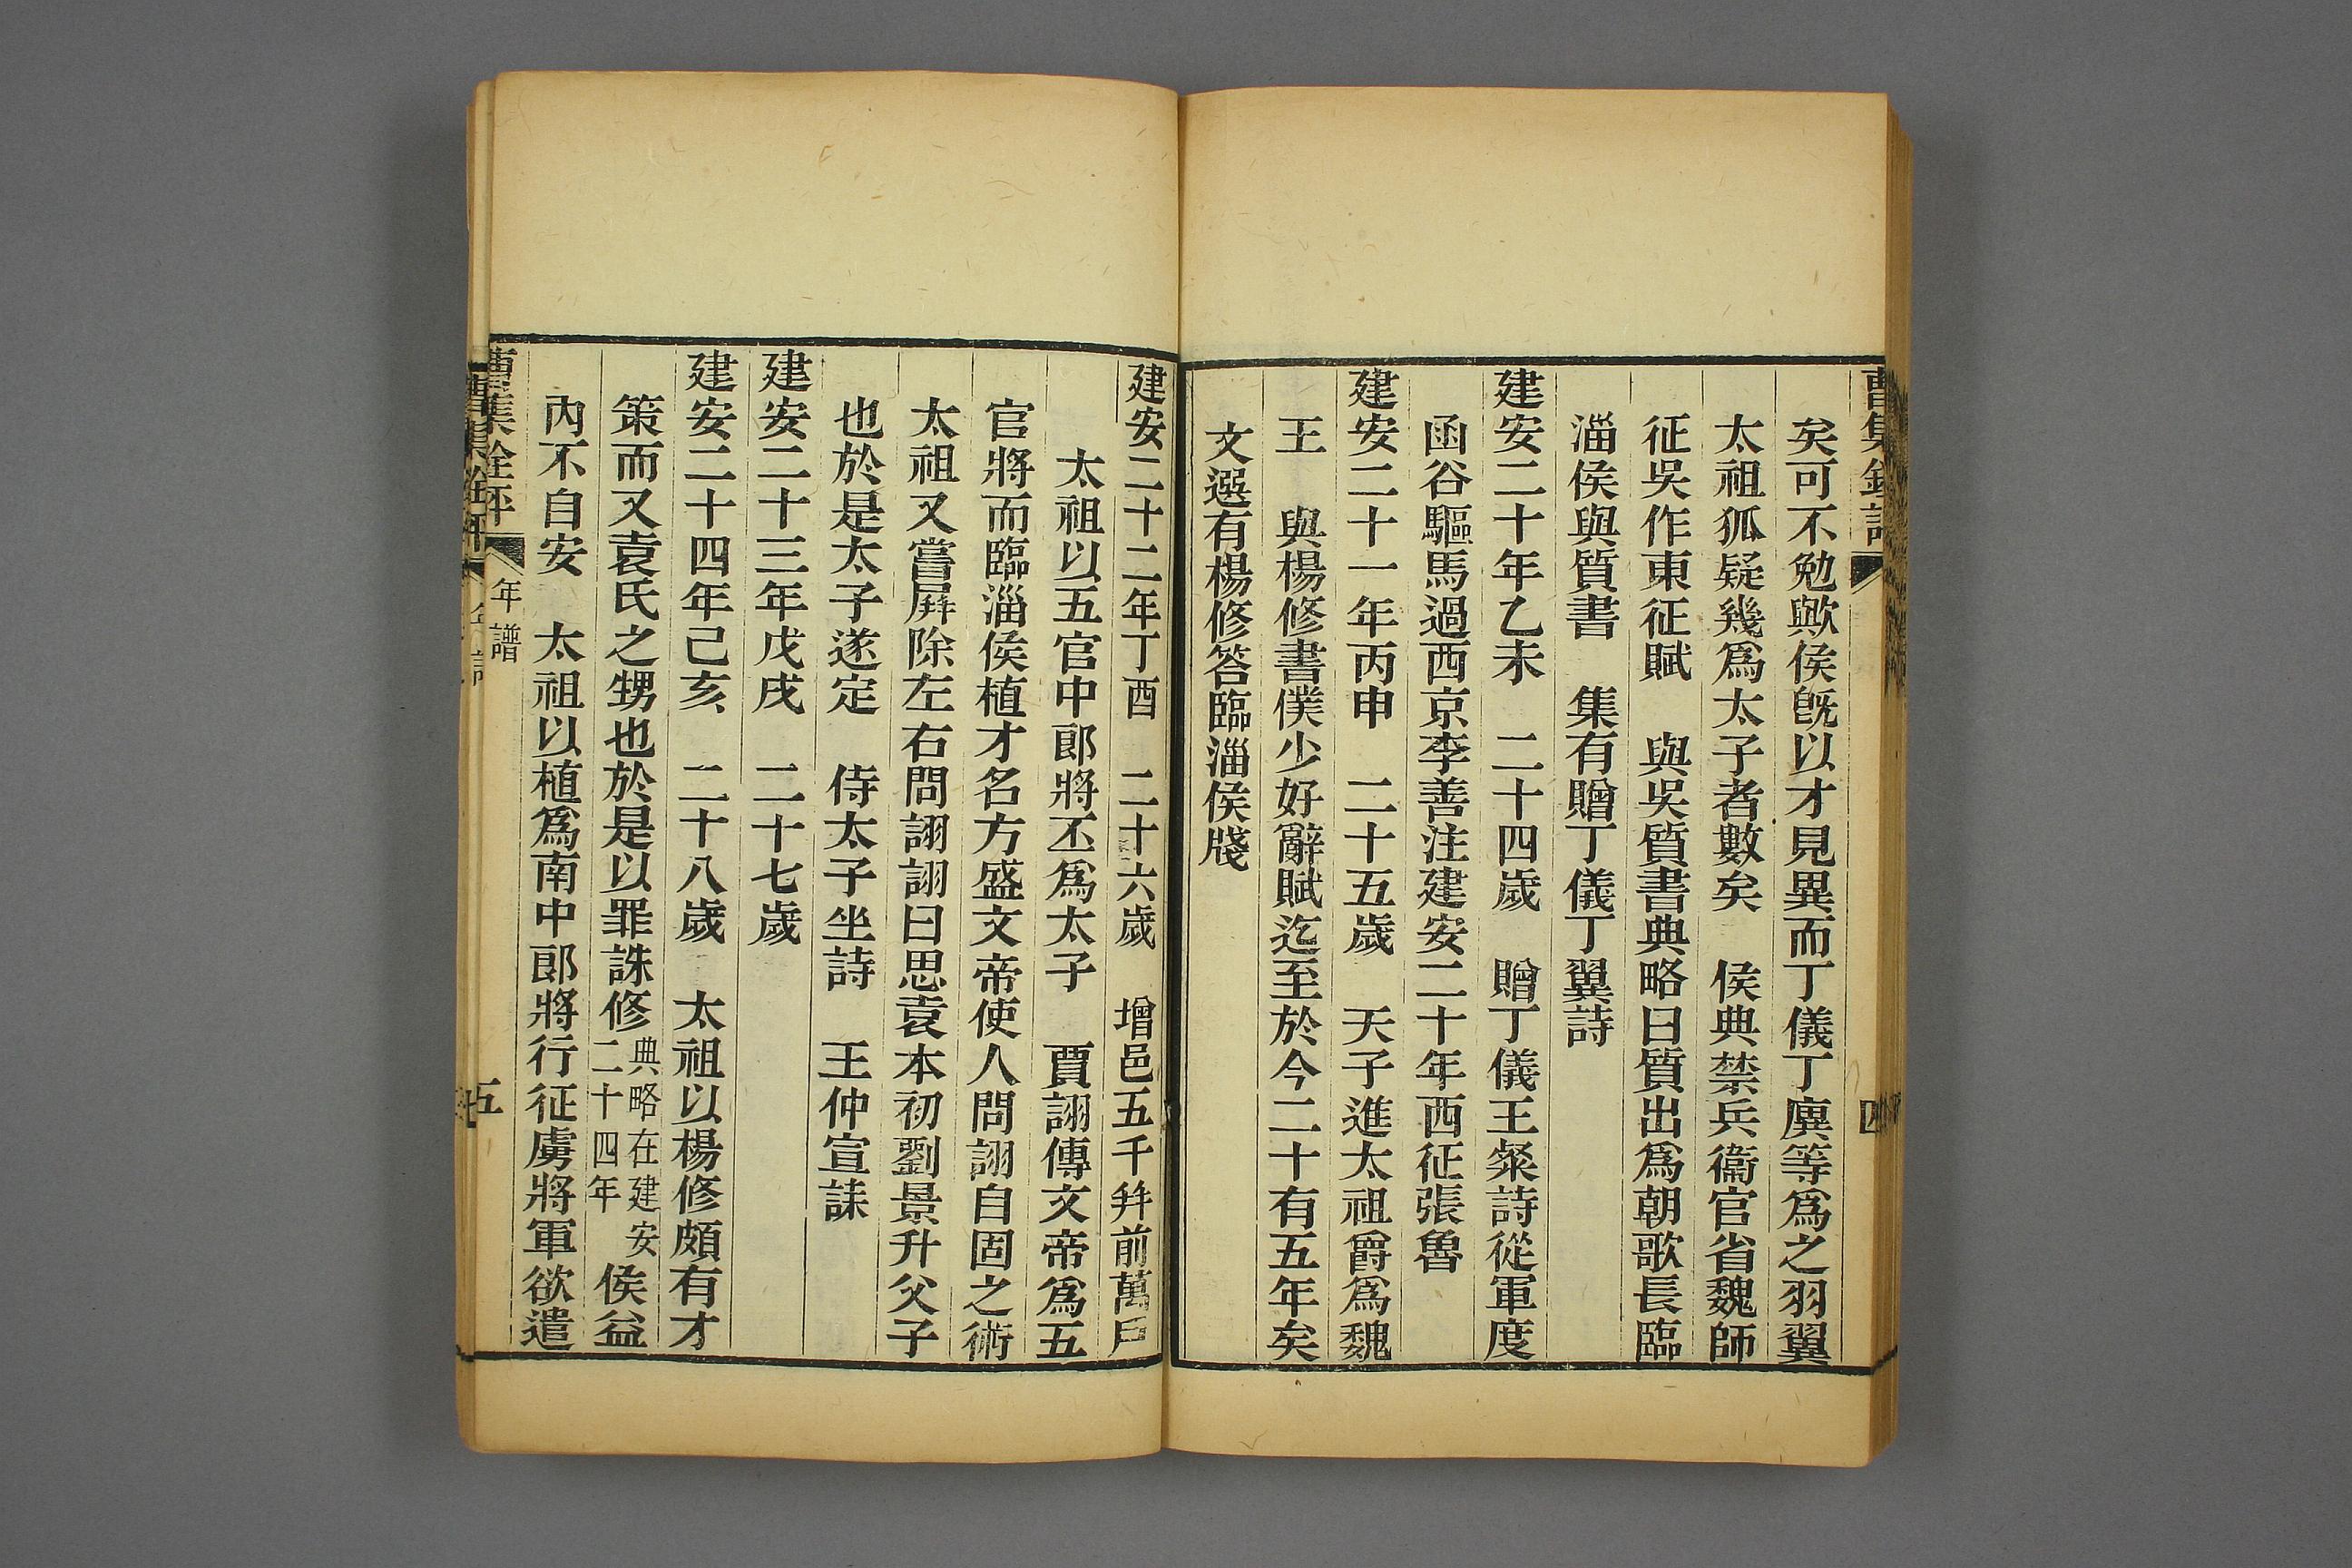 矣可不勉歟侯旣以才見異而丁儀丁廙等爲之羽翼
太祖狐疑幾爲太子者數矣　侯典禁兵衞官省魏師
征吳作東征賦　與吳質書典略曰質出爲朝歌長臨
淄侯與質書　集有贈丁儀丁翼詩
建安二十年乙未　二十四歲　贈丁儀王粲詩從軍度
函谷驅馬過西京李善注建安二十年西征張魯
建安二十一年丙申　二十五歲　天子進太祖爵爲魏
王　與楊修書僕少好辭賦迄至於今二十有五年矣
文選有楊修答臨淄侯牋
建安二十二年丁酉　二十六歲　增邑五千幷前萬戶
太祖以五官中郎將丕爲太子　賈詡傳文帝爲五
官將而臨淄侯植才名方盛文帝使人問詡自固之術
太祖又嘗屛除左右問詡詡曰思袁本初劉景升父子
也於是太子遂定　侍太子坐詩　王仲宣誄
建安二十三年戊戌　二十七歲
建安二十四年己亥　二十八歲　太祖以楊修頗有才
策而又袁氏之甥也於是以罪誅修典略在建安二十四年侯益
內不自安　太祖以植爲南中郎將行征虜將軍欲遣
曹集詮評　年譜　五